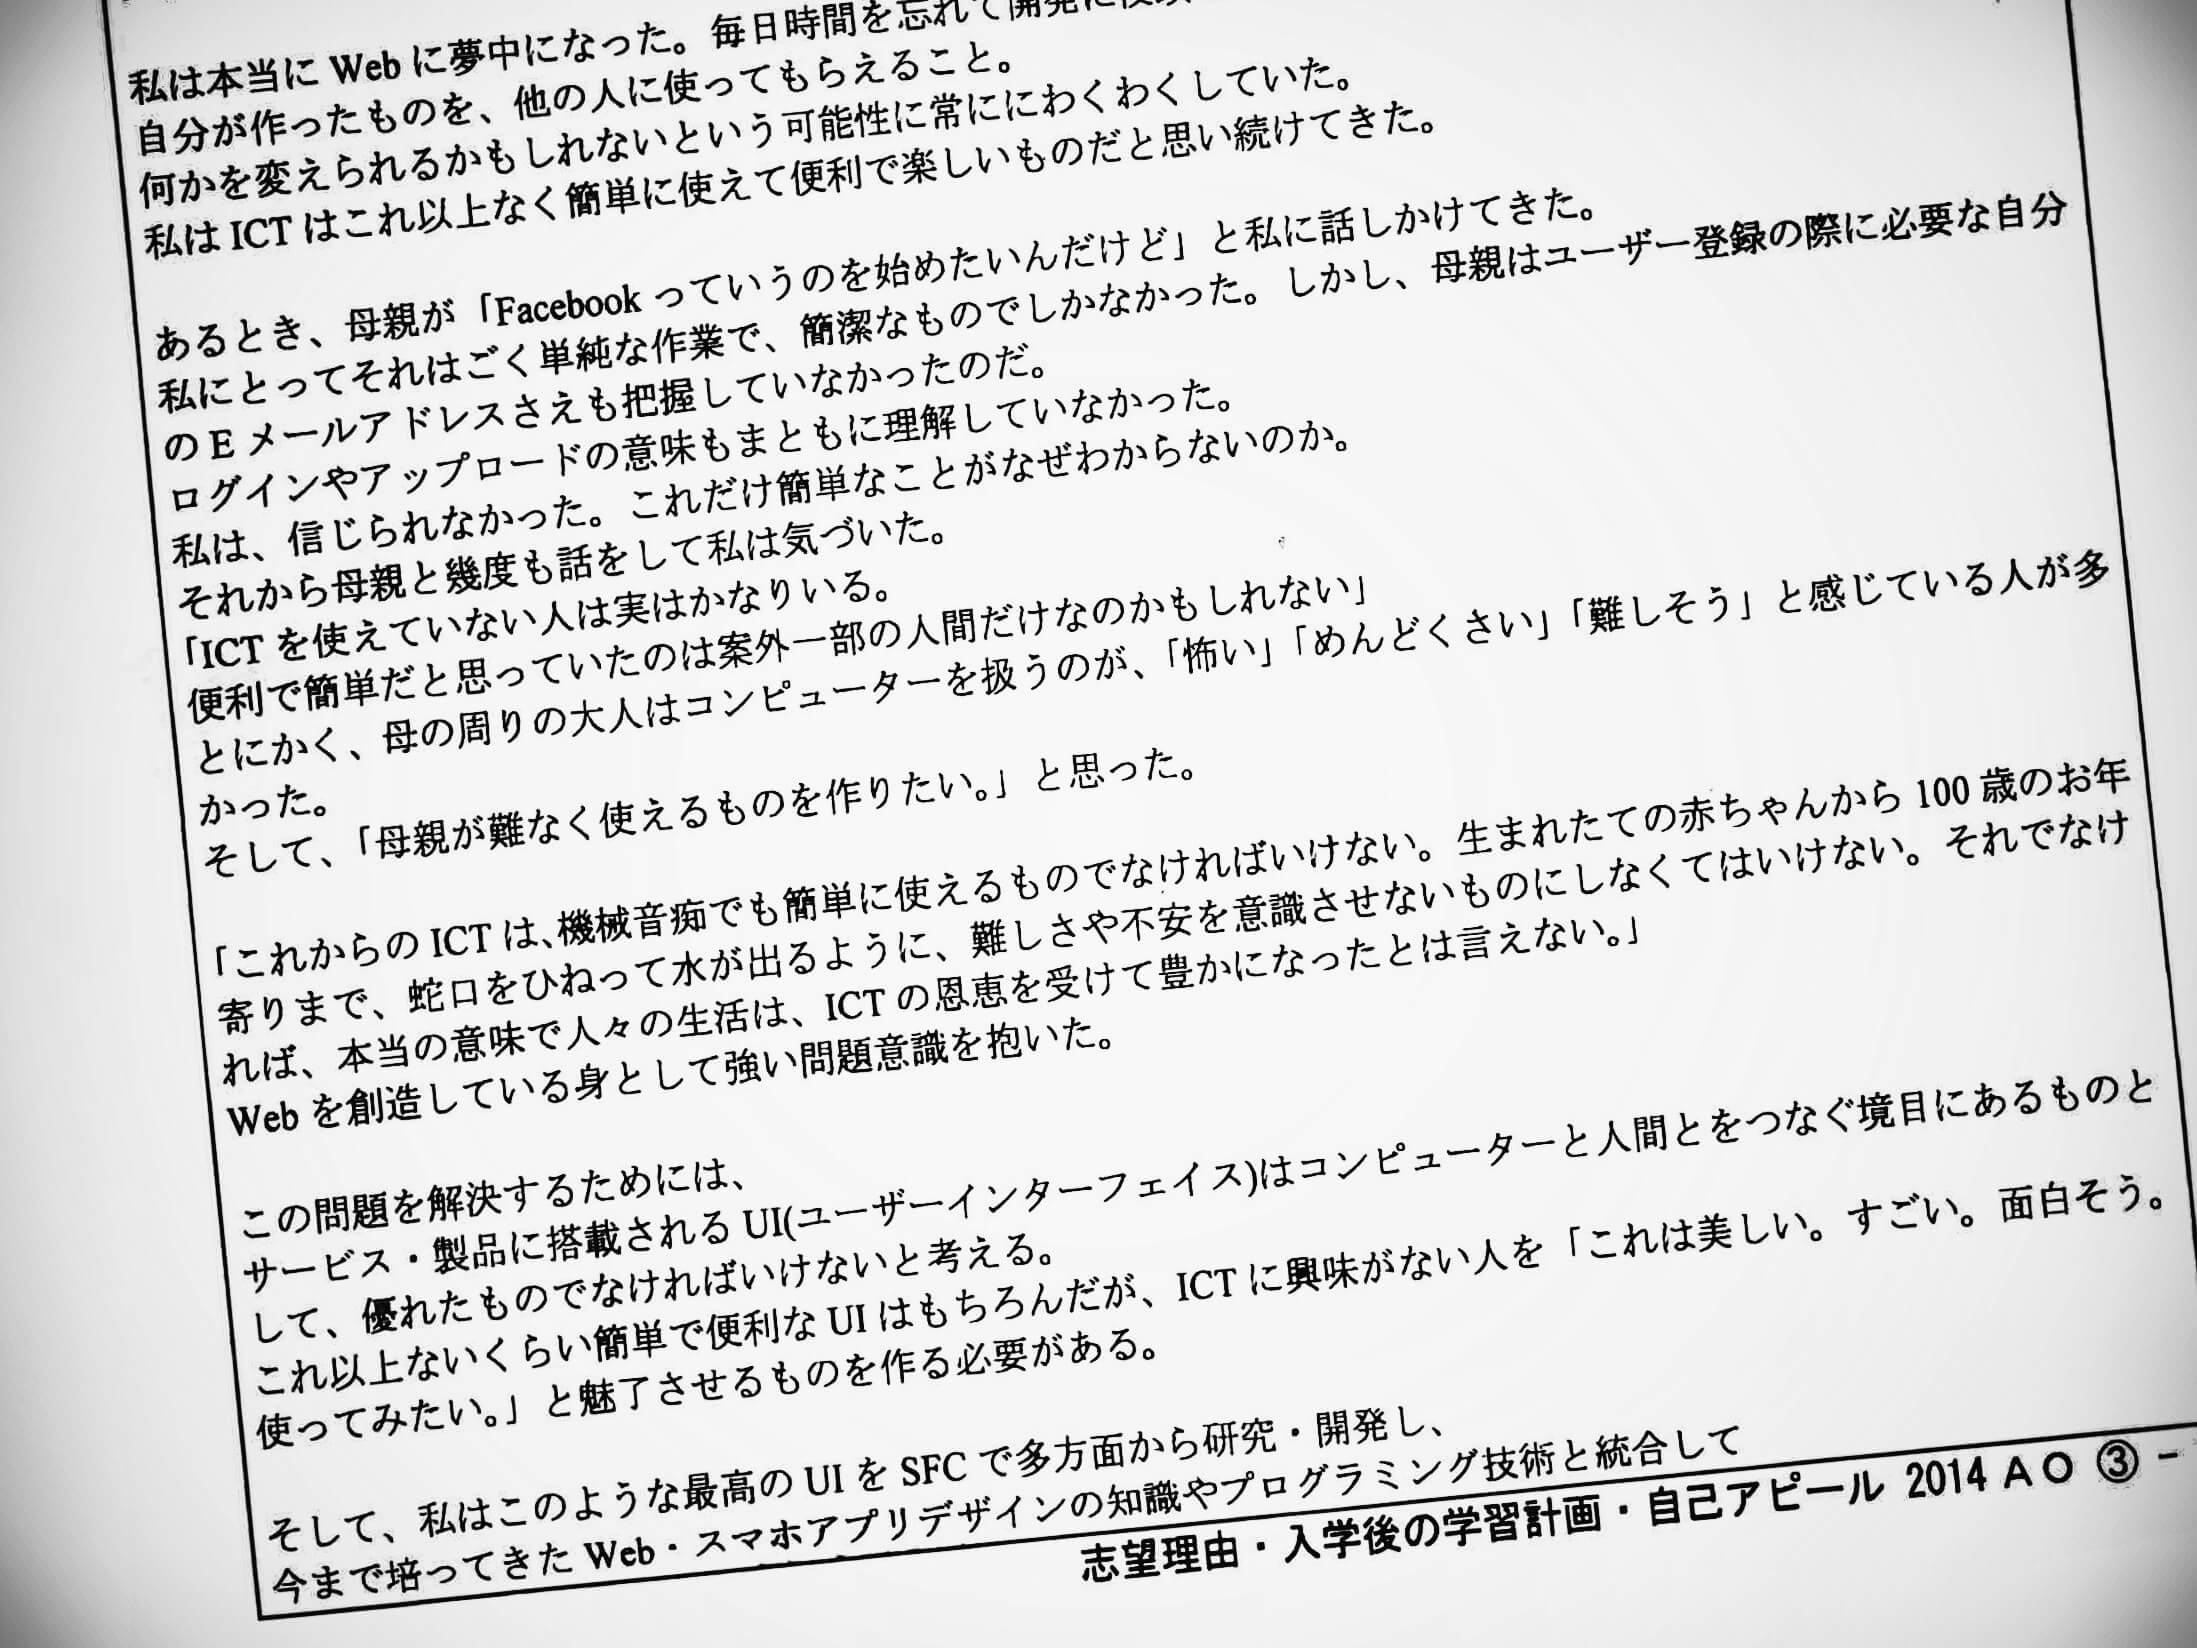 私は本当に Web に夢中になった。毎日時間を忘れて開発に
自分が作ったものを、他の人に使ってもらえること。
何かを変えられるかもしれないという可能性に常ににわくわくしていた。
私は ICT はこれ以上なく簡単に使えて便利で楽しいものだと思い続けてきた。
あるとき、母親が「Facebook っていうのを始めたいんだけど」と私に話しかけてきた。
私にとってそれはごく単純な作業で、簡潔なものでしかなかった。しかし、母親はユーザー登録の際に必要な自分
の E メールアドレスさえも把握していなかったのだ。
ログインやアップロードの意味もまともに理解していなかった。
私は、信じられなかった。これだけ簡単なことがなぜわからないのか。
それから母親と幾度も話をして私は気づいた。
「ICT を使えていない人は実はかなりいる。
便利で簡単だと思っていたのは案外一部の人間だけなのかもしれない」
とにかく、母の周りの大人はコンピューターを扱うのが、「怖い」「めんどくさい」「難しそう」と感じている人が多
かった。
そして、「母親が難なく使えるものを作りたい。」と思った。
「これからの ICT は、機械音痴でも簡単に使えるものでなければいけない。生まれたての赤ちゃんから 100 歳のお年
寄りまで、蛇口をひねって水が出るように、難しさや不安を意識させないものにしなくてはいけない。それでなけ
れば、本当の意味で人々の生活は、ICT の恩恵を受けて豊かになったとは言えない。」
Web を創造している身として強い問題意識を抱いた。
この問題を解決するためには、
サービス・製品に搭載される UI(ユーザーインターフェイス)はコンピューターと人間とをつなぐ境目にあるものと
して、優れたものでなければいけないと考える。
これ以上ないくらい簡単で便利な UI はもちろんだが、ICT に興味がない人を「これは美しい。すごい。面白そう。
使ってみたい。」と魅了させるものを作る必要がある。
そして、私はこのような最高の UI を SFC で多方面から研究・開発し、
今まで培ってきた Web・スマホアプリデザインの知識やプログラミング技術と統合して
志望理由・入学後の学習計画・自己アピール 2014 AO ③ -